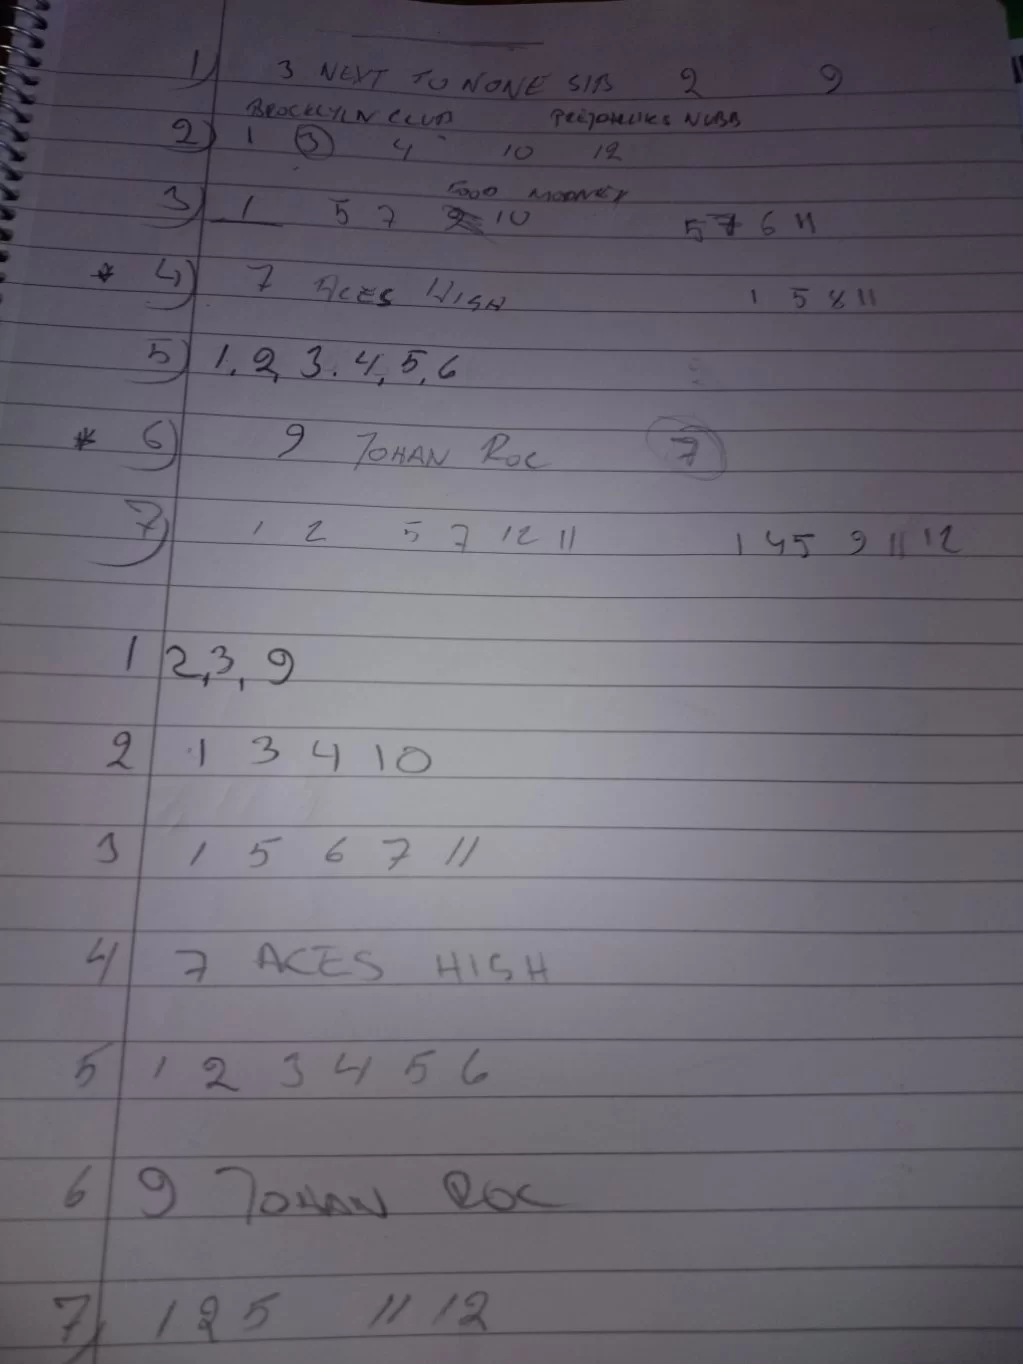 1) 3 NEXT TO NONE SIB 2 9
BROCKLYLN CLUB
2) 1 3 4 10 12
5000 MOONEY
3) 1 5 7 10 5 7 6 11
* 4) 7 ACES HIGH 1 5 8 11
5) 1, 2, 3. 4, 5, 6
* 6) 9 JOHAN ROC 7
7) 1 2 5 7 12 11 1 4 5 9 11 12
1 2, 3, 9
2 1 3 4 10
3 1 5 6 7 11
4 7 ACES HIGH
5 1 2 3 4 5 6
6 9 JOHAN ROC
7) 1 2 5 11 12